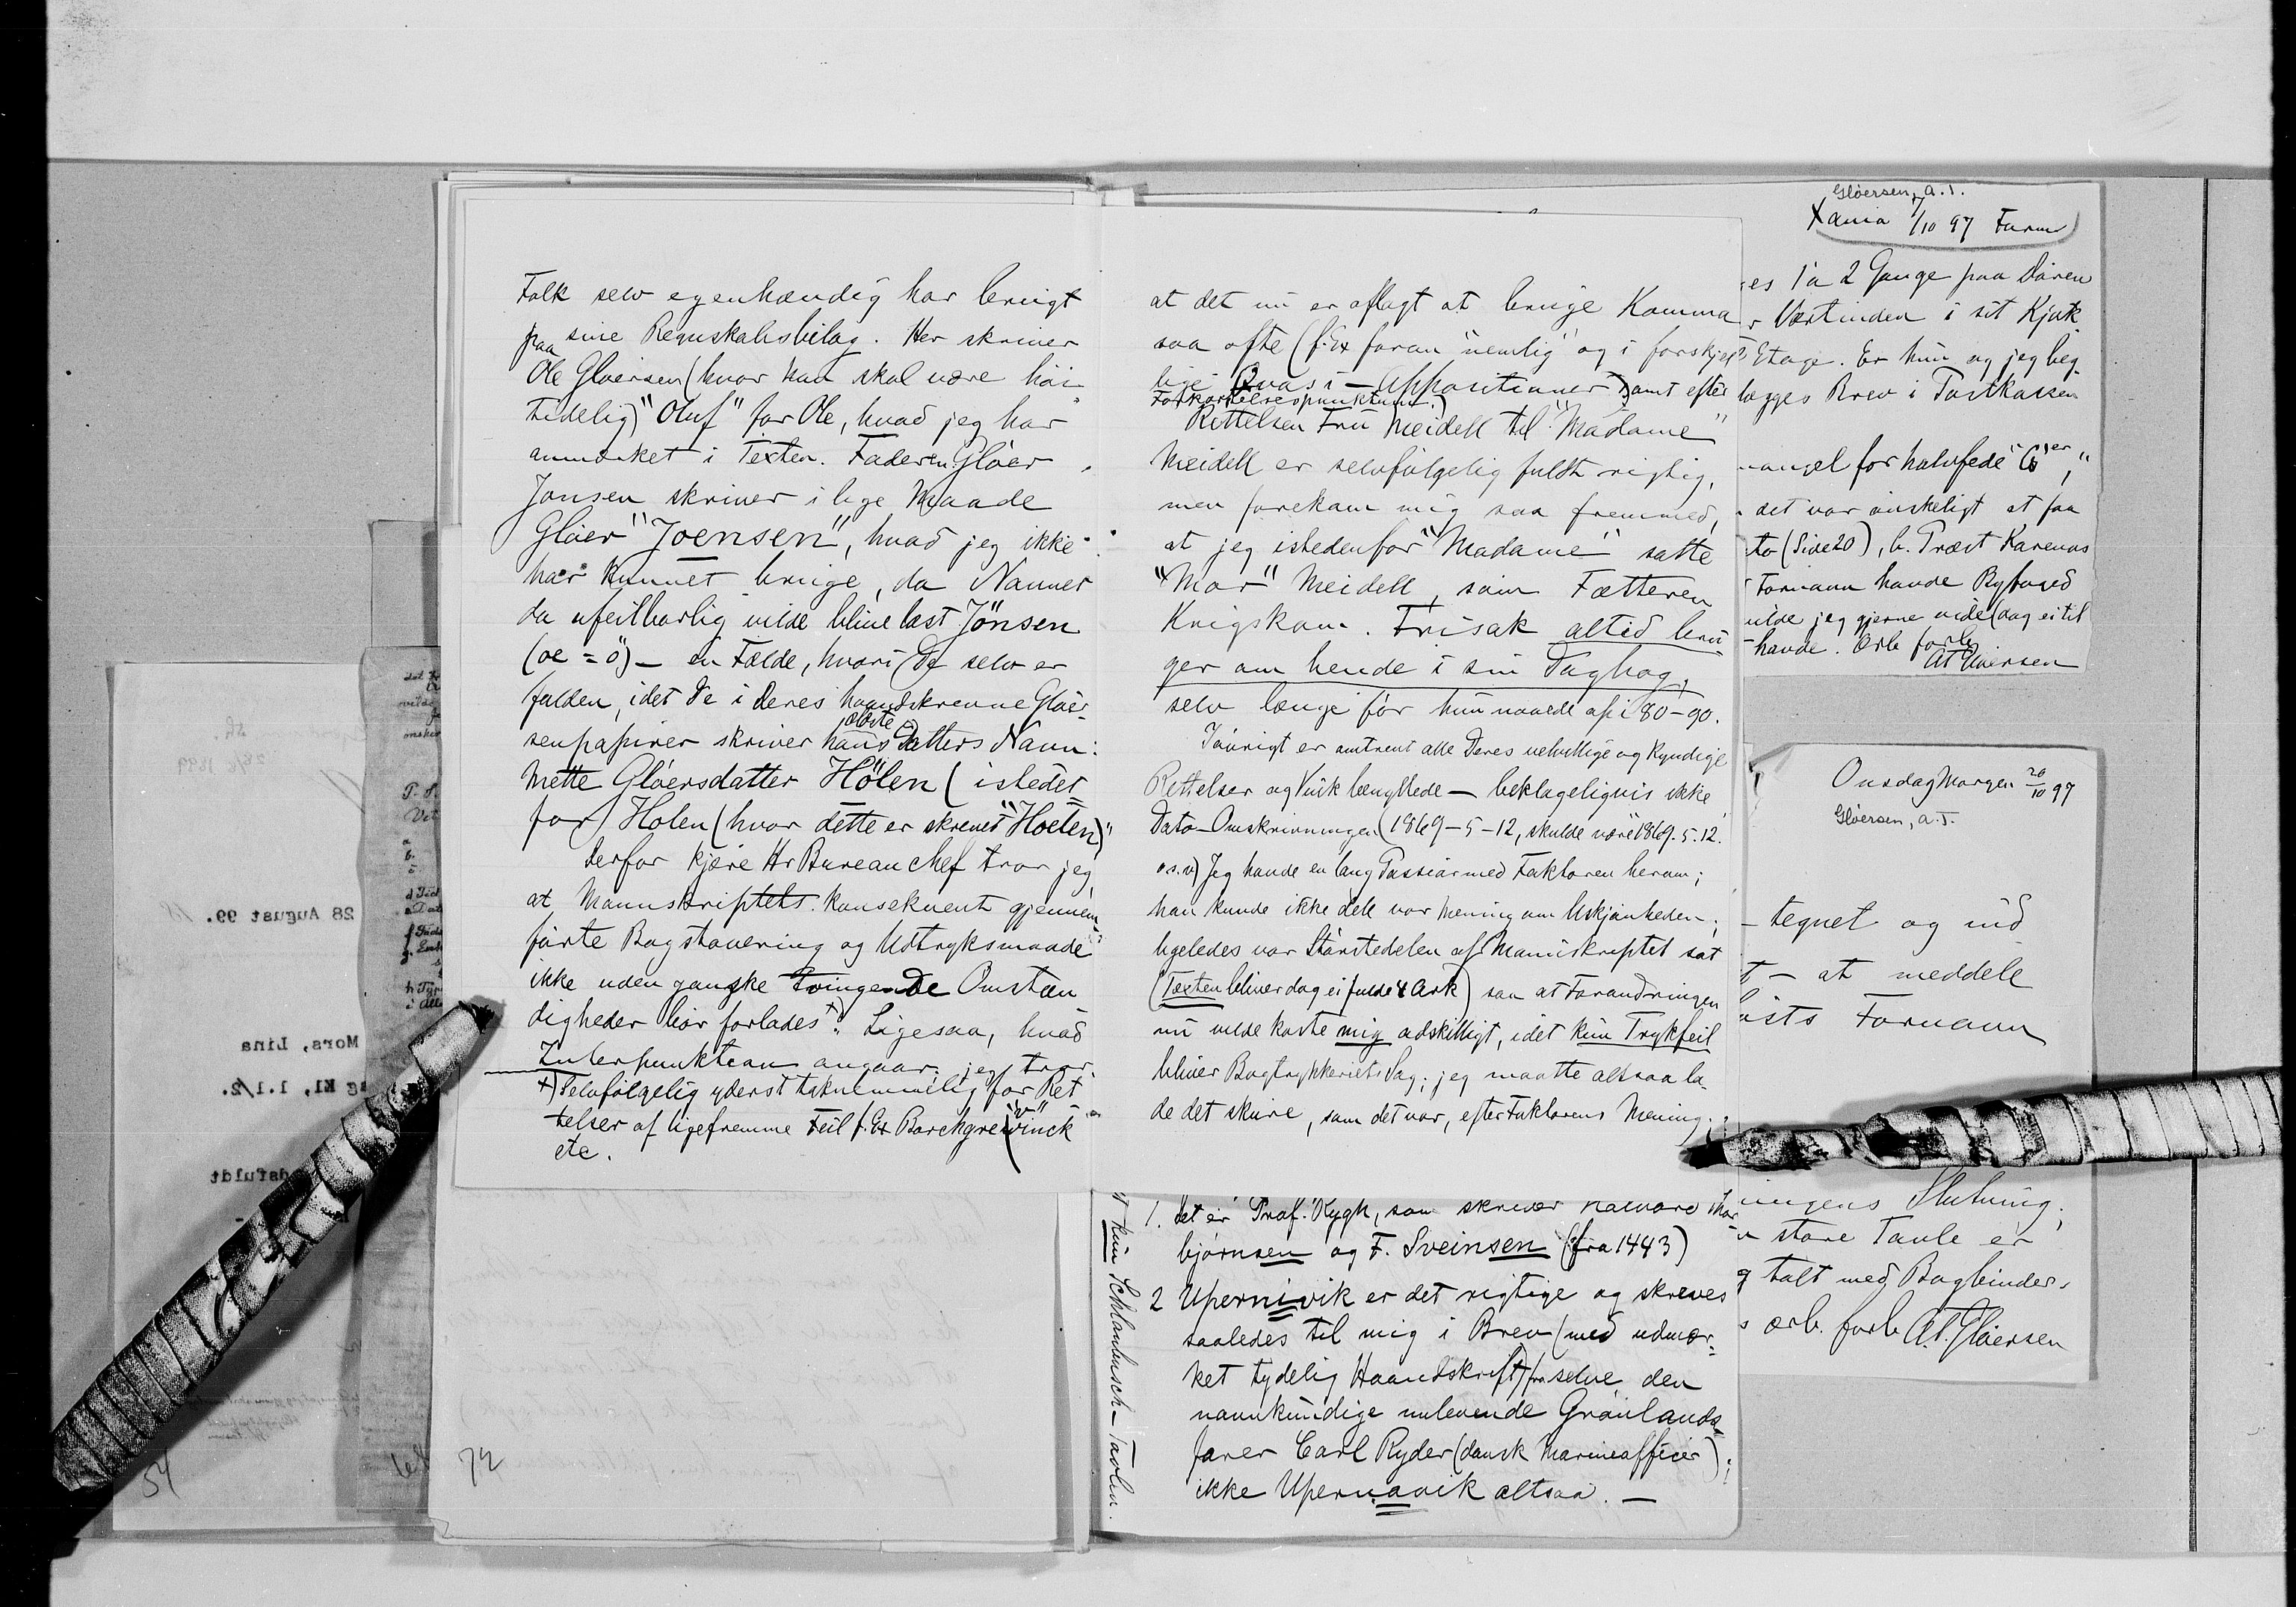 Folk selv egenhændig har brugt
paa sine Regnskabsbilag. Her skriver
Ole Gløersen (hvor han skal være høi-
tidelig) "Oluf" for Ole, hvad jeg har
anmærket i Texten. Faderen Gløer
Jonsen skriver i lige Maade
Gløer "Joensen", hvad jeg ikke
har kunnet bruge, da Navnet
da ufeilbarlig vilde blive læst Jönsen
(oe = ö) – en Fælde, hvori De selv er
falden, idet De i Deres haandskrevne Gløer-
senpapirer skriver hans ældste Datters Navn:
Mette Gløersdatter Hölen (istedet
for) Holen (hvor dette er skrevet "Hoelen)"
Derfor kjære Hr Bureauchef tror jeg,
at Manuskriptets konsekvent gjennem-
førte Bogstavering og Udtryksmaade
ikke uden ganske tvingende Omstæn
digheder bør forlades +). Ligesaa, hvad
Interpunktion angaar, jeg tror
+) Selvfølgelig yderst taknemmelig for Ret
telser af ligefremme Feil f. Ex Borchgrevinck "v"
etc.
72
at det nu er aflagt at bruge Komma
saa ofte (f. Ex foran "nemlig" og i forskjel
lige Quasi-Appositioner samt efter
Forkortelsespunktum.)
Rettelsen Fru Meidell til "Madame"
Meidell er selvfølgelig fuldt rigtig,
men forekom mig saa fremmed,
at jeg istedenfor "Madame" satte
"Mor" Meidell, som Fætteren
Krigskom. Frisak altid bru
ger om hende i sin Dagbog,
selv længe før hun naaede op i 80-90.
Iøvrigt er omtrent alle Deres velvillige og kyndige
Rettelser og Vink benyttede – beklageligvis ikke
Dato-Omskrivningen (1869-5-12, skulde være 1869.5.12.
o.s.v) Jeg havde en lang Passiar med Faktoren herom;
han kunde ikke dele vor Mening om Uskjønheden;
ligeledes var Størstedelen af Manuskriptet sat
(Texten bliver dog ei fulde 4 Ark) saa at Forandringen
nu vilde koste mig adskilligt, idet kun Trykfeil
bliver Bogtrykkeriets Sag; jeg maatte altsaa la
de det skure, som det var, efter Faktorens Mening.
1. Det er Prof. Rygh, som skriver Halvard Thor
bjørnsen og F. Sveinsen (fra 1443)
2 Upernivik er det rigtige og skreves
saaledes til mig i Brev (med udmær-
ket tydelig Haandskrift) fra selve den
navnkundige nulevende Grønlands
farer Carl Ryder (dansk Marineofficer);
ikke Upernavik altsaa. —
kun Schlanbusch-Tavlen.
Gløersen, A.T.
Xania /10 97
es 1 à 2 Gange paa Døren
Værtinden i sit Kjøk
Etage. Er hun og jeg beg
lægges Brev i Postkassen
mangel for halvfede
det var ønskeligt at faa
to (Side 20), b. Præst Karenus
Fornavn havde Bgfoged
vilde jeg gjerne vide (dog ei til
havde. Ærb forb
AT Gløersen
Onsdag Morgen 20/10 97
Gløersen, A.T.
tegnet og ind
t – at meddele
Fornavn
ingens Slutning;
store Tavle er
talt med Bogbinder
ærb. forb. A.T. Gløersen
28 August 99.
Mors, Lina
Kl, 1.1/2.
54